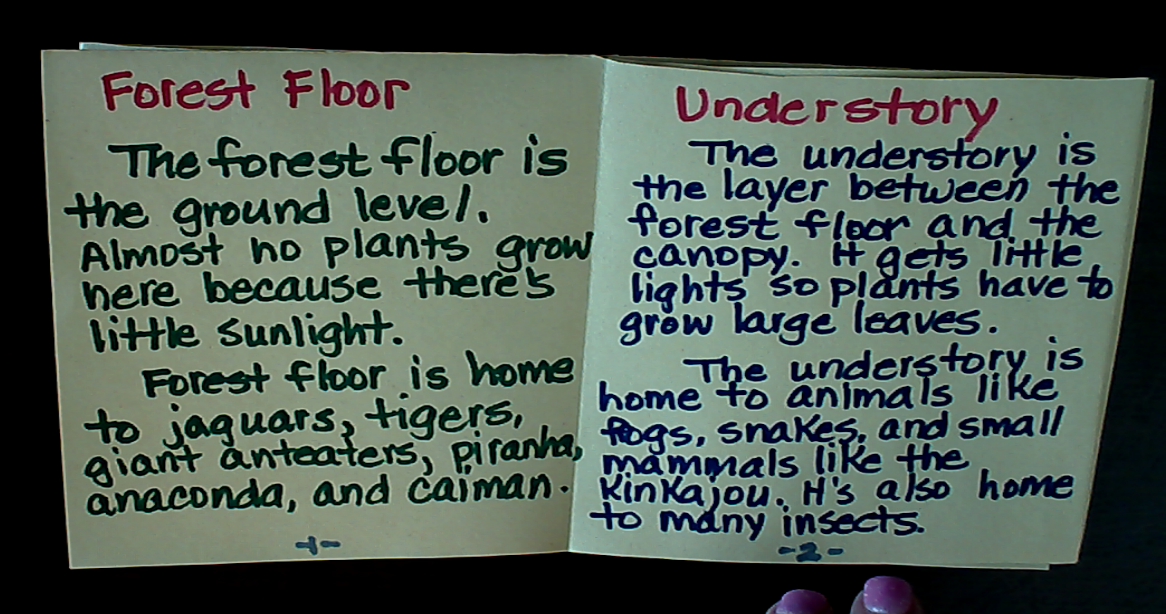 Forest Floor
The forest floor is
the ground level.
Almost no plants grow
here because there's
little sunlight.
Forest floor is home
to jaguars, tigers,
giant anteaters, piranha,
anaconda, and caiman.
-1-
Understory
The understory is
the layer between the
forest floor and the
canopy. It gets little
lights so plants have to
grow large leaves.
The understory is
home to animals like
frogs, snakes, and small
mammals like the
kinkajou. It's also home
to many insects.
-2-